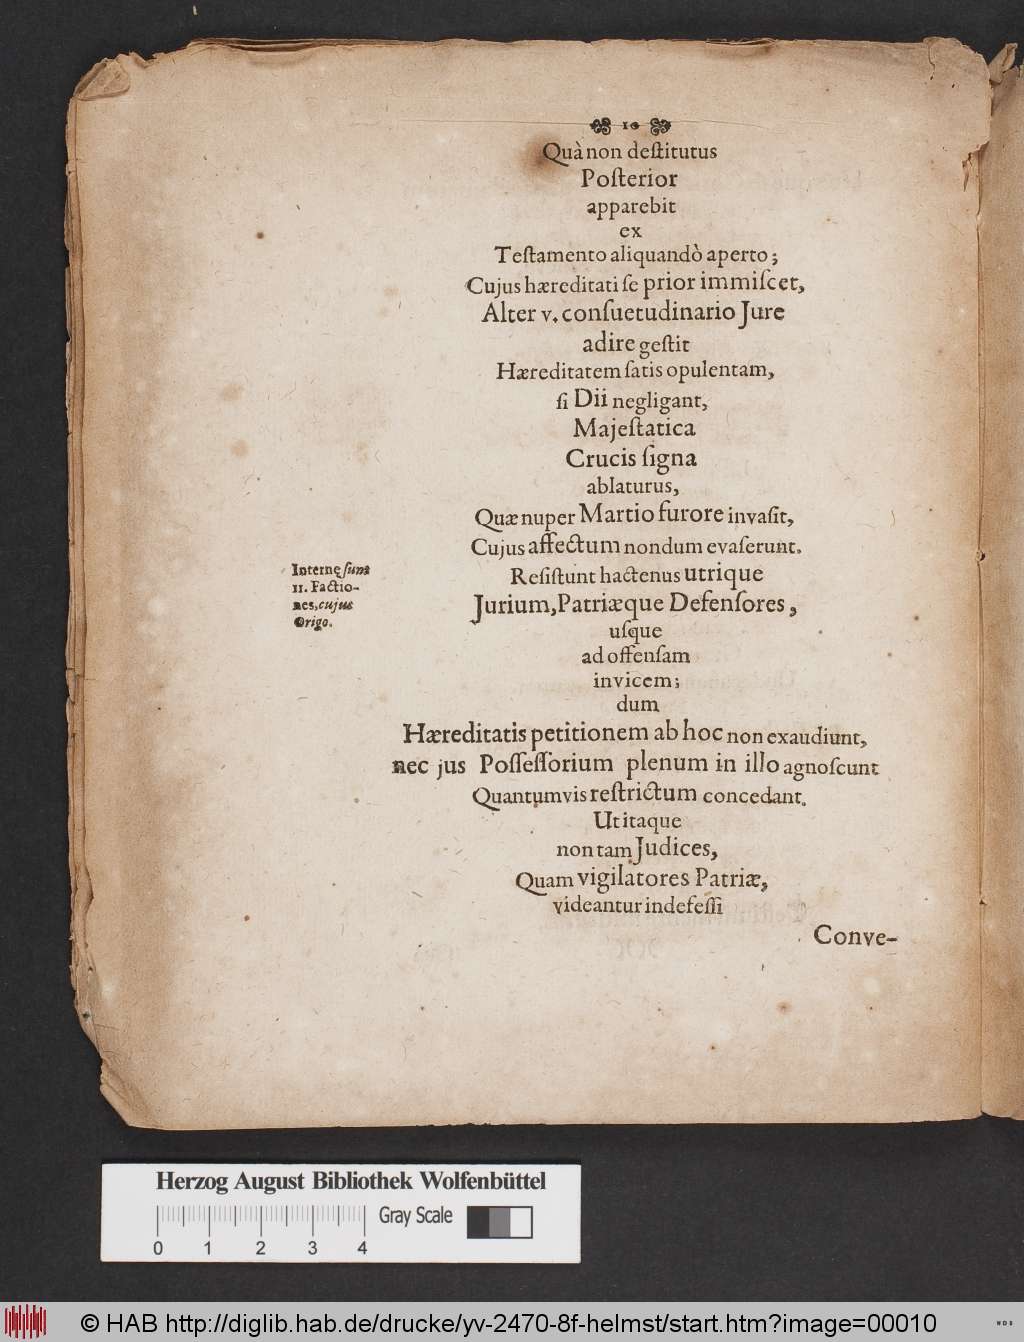 10
Quà non deſtitutus
Poſterior
apparebit
ex
Teſtamento aliquandò aperto;
Cujus hæreditati ſe prior immiſcet,
Alter v. conſuetudinario Jure
adire geſtit
Hæreditatem ſatis opulentam,
ſi Dii negligant,
Majeſtatica
Crucis ſigna
ablaturus,
Quæ nuper Martio furore invaſit,
Cujus affectum nondum evaſerunt.
Internę ſunt
II. Factio-
nes, cujus
Origo.
Reſiſtunt hactenus utrique
Jurium, Patriæque Defenſores,
uſque
ad offenſam
invicem;
dum
Hæreditatis petitionem ab hoc non exaudiunt,
nec jus Poſſeſſorium plenum in illo agnoſcunt
Quantumvis reſtrictum concedant.
Ut itaque
non tam Judices,
Quam vigilatores Patriæ,
videantur indefeſſi
Conve-
Herzog August Bibliothek Wolfenbüttel
Gray Scale
0 1 2 3 4
© HAB http://diglib.hab.de/drucke/yv-2470-8f-helmst/start.htm?image=00010